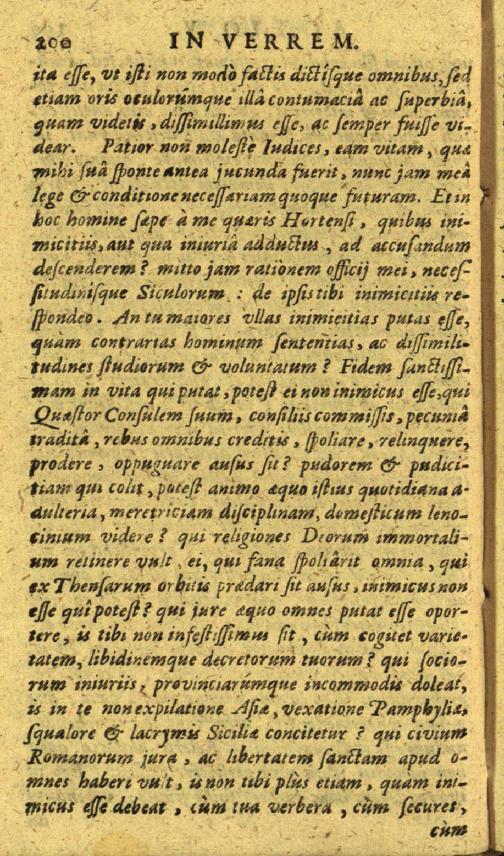 200 IN VERREM.
ita esse, vt isti non modò factis dictísque omnibus, sed
etiam oris oculorúmque illâ contumaciâ ac superbiâ,
quam videtis, dissimillimus esse, ac semper fuisse vi-
dear. Patior non molestè Iudices, eam vitam, quæ
mihi suâ sponte antea jucunda fuerit, nunc jam meâ
lege & conditione necessariam quoque futuram. Et in
hoc homine sæpe à me quæris Hortensi, quibus ini-
micitiis, aut qua iniuriâ adductus, ad accusandum
descenderem? mitto jam rationem officij mei, neces-
situdinisque Siculorum : de ipsis tibi inimicitiis re-
spondeo. An tu maiores vllas inimicitias putas esse,
quàm contrarias hominum sententias, ac dissimili-
tudines studiorum & voluntatum? Fidem sanctissi-
mam in vita qui putat, potest ei non inimicus esse, qui
Quæstor Consulem suum, consiliis commissis, pecuniâ
traditâ, rebus omnibus creditis, spoliare, relinquere,
prodere, oppuguare ausus sit? pudorem & pudici-
tiam qui colit, potest animo æquo istius quotidiana a-
dulteria, meretriciam disciplinam, domesticum leno-
cinium videre? qui religiones Deorum immortali-
um retinere vult, ei, qui fana spoliârit omnia, qui
ex Thensarum orbitis prædari sit ausus, inimicus non
esse quî potest? qui jure æquo omnes putat esse opor-
tere, is tibi non infestissimus sit, cùm cogitet varie-
tatem, libidinemque decretorum tuorum? qui socio-
rum iniuriis, provinciarúmque incommodis doleat,
is in te non expilatione Asiæ, vexatione Pamphyliæ,
squalore & lacrymis Siciliæ concitetur? qui civium
Romanorum jura, ac libertatem sanctam apud o-
mnes haberi vult, is non tibi plùs etiam, quàm ini-
micus esse debeat, cùm tua verbera, cùm secures,
cùm